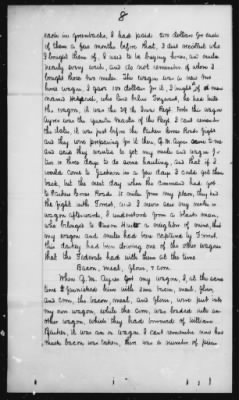 8
each in greenbacks, I had paid 200 dollars for each
of them a few months before that, I dont recollect who
I bought them of, I used to be buying horses, and mules
nearly every week, and do not remember of whom I
bought these two mules. The wagon was a new two
horse wagon, I gave 100 dollars for it, I bought of a man
named, he had to
this wagon, it was the 3d Ills Regt that the wagon
Ayres was the Quarter Master of the Regt. I cant remember
the date, it was just before the Parkers Cross Roads fight
and they were preparing for it then, G. M. Ayres came to me
and said they wanted to get my mules and wagon for
two or three days to do some hauling, and that if I
would come to Jackson in a few days I could get them
back, but the next day when the command had got
to Parkers Cross Roads 12 miles from my place, they had
the fight with Forrest, and I never saw my mules or
wagon afterwards, I understood from a black man,
who belongs to a neighbor of mine, that
my wagon and mules had been captured by Forrest,
this darkey had been driving one of the other wagons
that the Federals had with them at the time
Bacon, meal, flour, & corn
When G. M. Ayres got my wagon, I, at the same
time I furnished him with some bacon, meal, flour,
and corn, the bacon, meal, and flour, were put into
my own wagon, while the corn, was loaded into an-
other wagon, which they had pressed of William
Parker, it was in a wagon I cant remember now how
much bacon was taken, there was a number of pieces